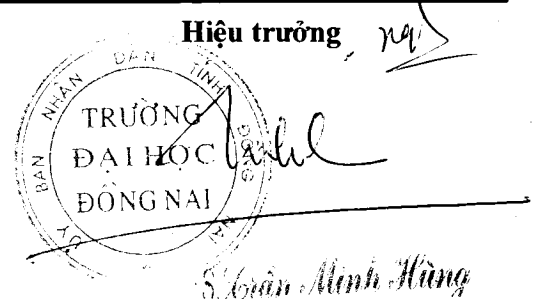 Hiệu trưởng
ỦY BAN NHÂN DÂN TỈNH ĐỒNG NAI
TRƯỜNG
ĐẠI HỌC
ĐỒNG NAI
Trần Minh Hùng